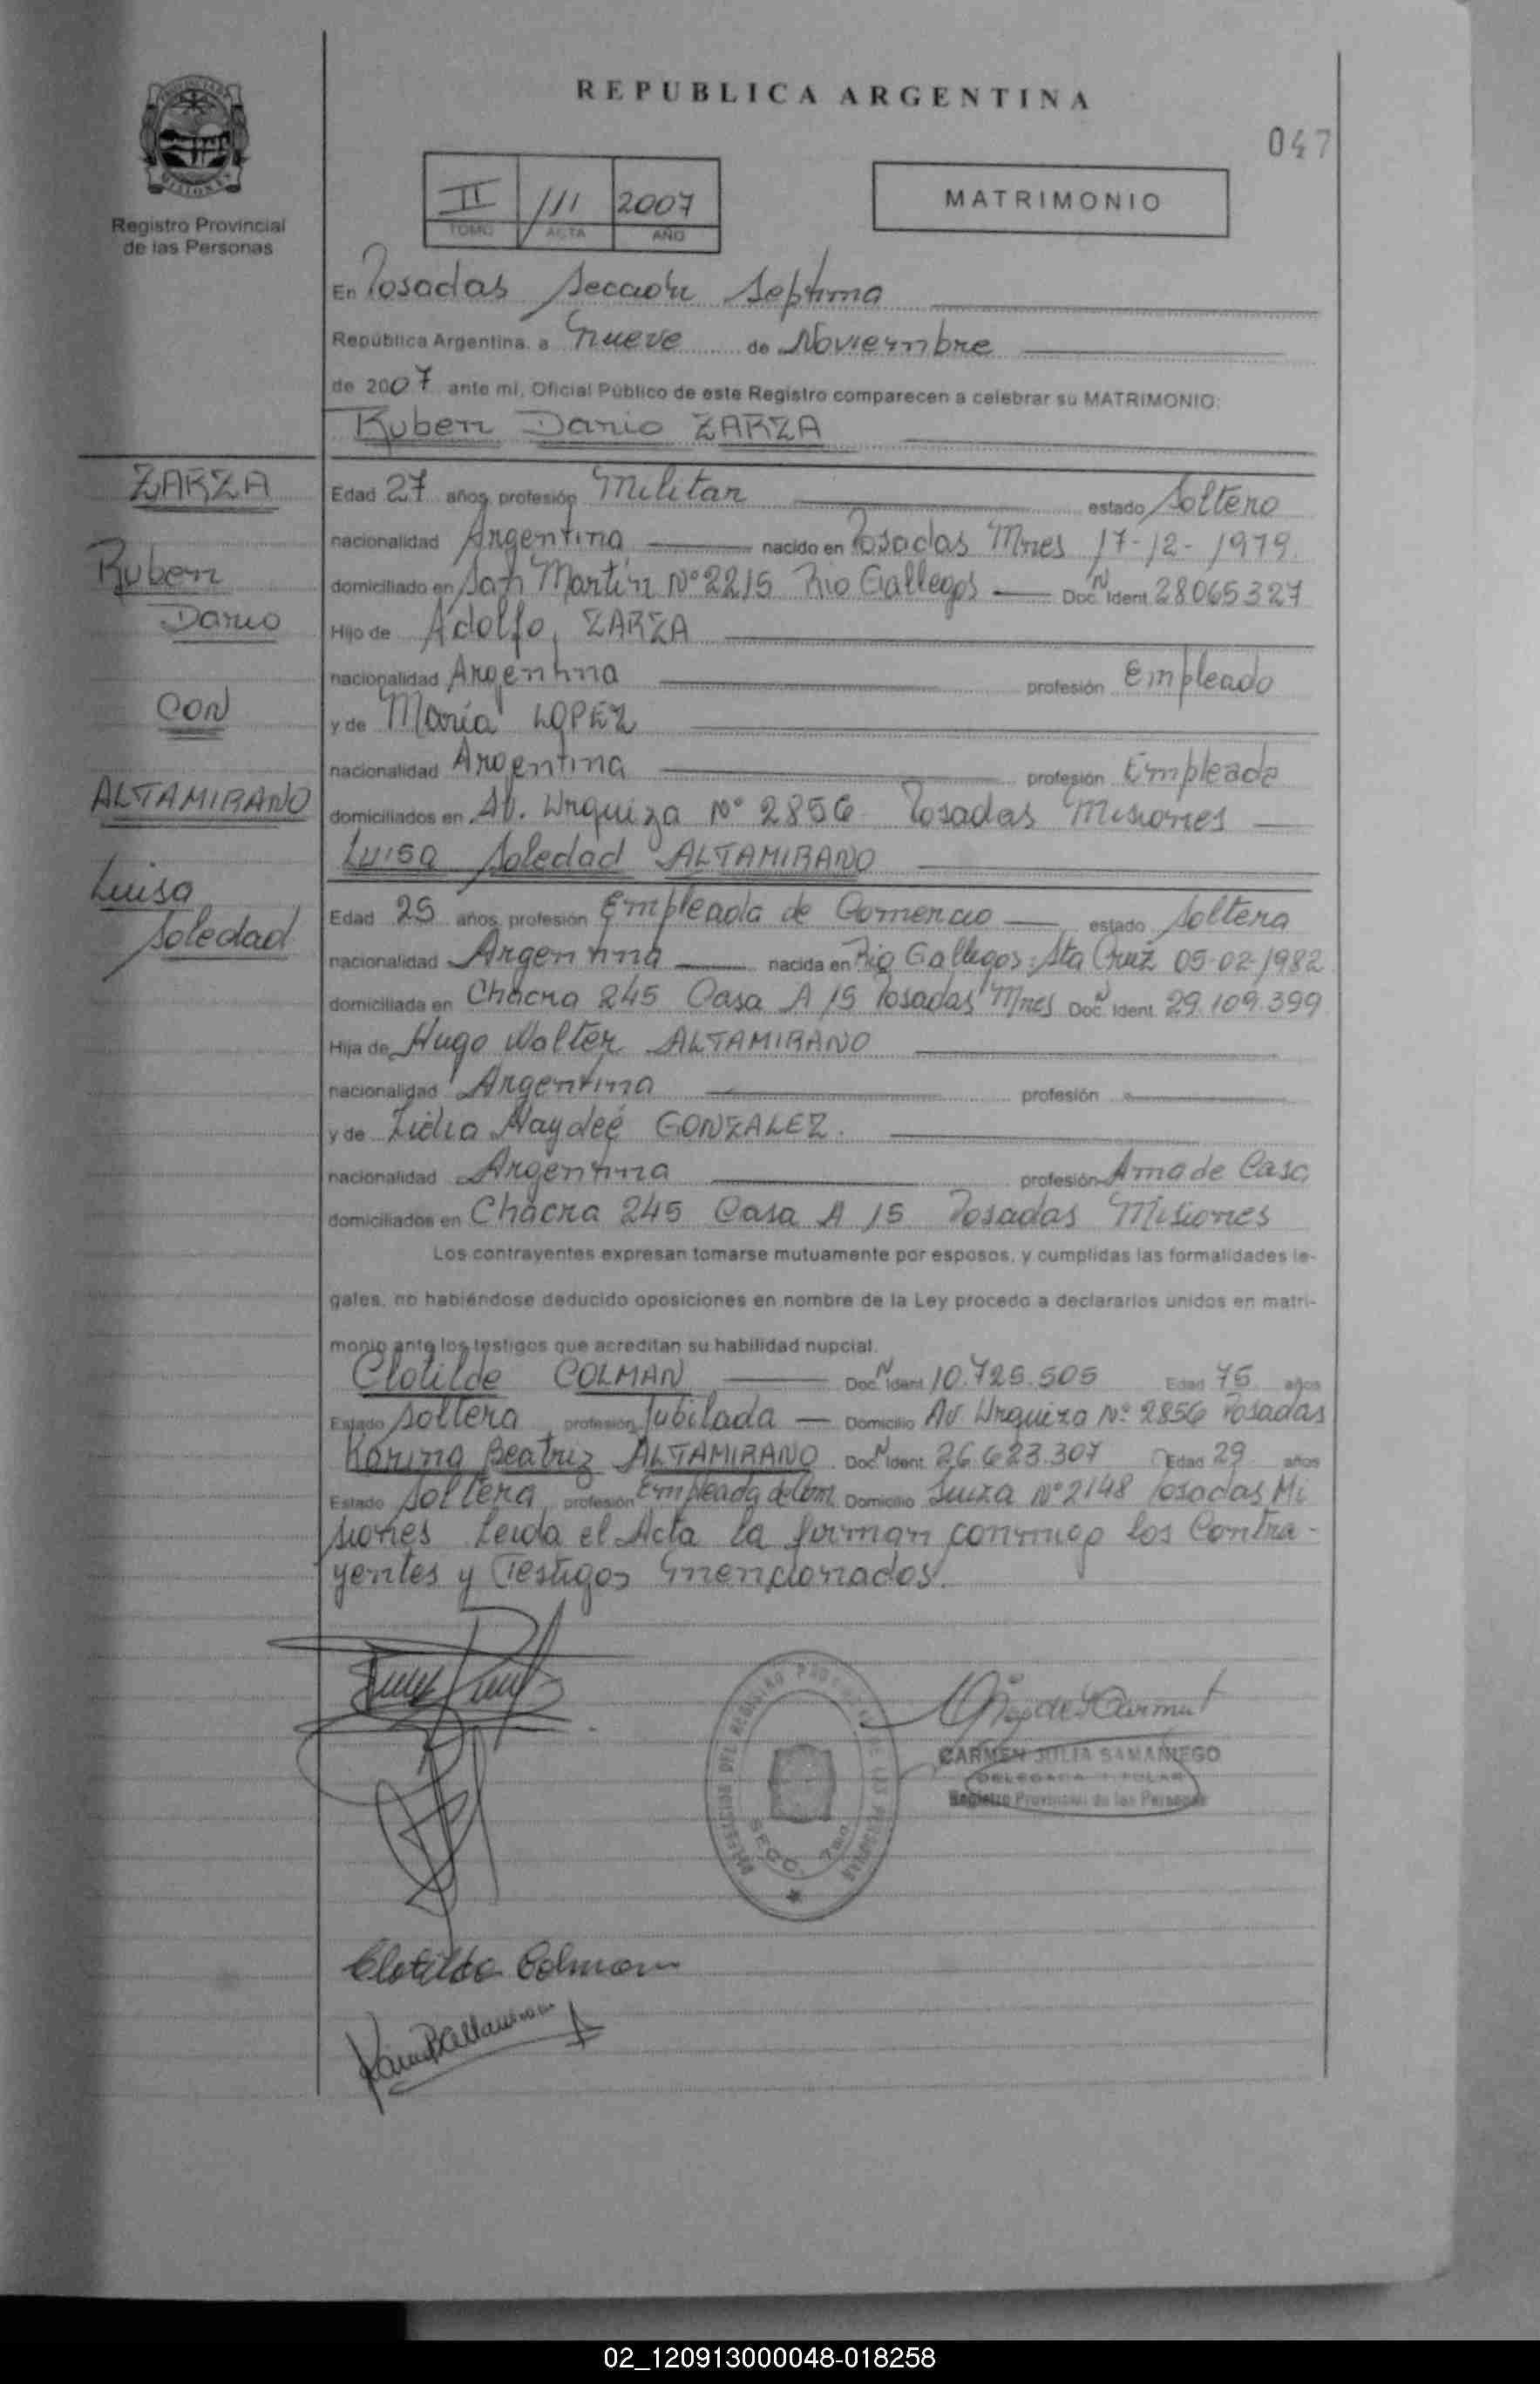 REPUBLICA ARGENTINA
047
II /// 2007
TOMO ACTA AÑO
MATRIMONIO
Registro Provincial
de las Personas
En Posadas Sección Septima
República Argentina, a nueve de Noviembre
de 2007 ante mí, Oficial Público de este Registro comparecen a celebrar su MATRIMONIO:
Ruben Dario ZARZA
ZARZA
Ruben
Dario
CON
ALTAMIRANO
Luisa
Soledad
Edad 27 años, profesión Militar estado Soltero
nacionalidad Argentina nacido en Posadas Mnes 17-12-1979
domiciliado en San Martín Nº 2215 Rio Gallegos Doc. N Ident. 28065327
Hijo de Adolfo, ZARZA
nacionalidad Argentina profesión Empleado
y de María LOPEZ
nacionalidad Argentina profesión Empleada
domiciliados en Av. Urquiza Nº 2856 Posadas Misiones
Luisa Soledad ALTAMIRANO
Edad 25 años, profesión Empleada de Comercio estado Soltera
nacionalidad Argentina nacida en Rio Gallegos Sta Cruz 05-02-1982
domiciliada en Chacra 245 Casa A 15 Posadas Mnes Doc. N Ident. 29.109.399
Hija de Hugo Walter ALTAMIRANO
nacionalidad Argentina profesión
y de Lidia Haydeé GONZALEZ.
nacionalidad Argentina profesión Ama de Casa
domiciliados en Chacra 245 Casa A 15 Posadas Misiones
Los contrayentes expresan tomarse mutuamente por esposos, y cumplidas las formalidades le-
gales, no habiéndose deducido oposiciones en nombre de la Ley procedo a declararlos unidos en matri-
monio ante los testigos que acreditan su habilidad nupcial.
Clotilde COLMAN Doc. N Ident. 10.725.505 Edad 75 años
Estado Soltera profesión Jubilada Domicilio Av Urquiza Nº 2856 Posadas
Karina Beatriz ALTAMIRANO Doc. N Ident. 26.623.307 Edad 29 años
Estado Soltera profesión Empleada de Com. Domicilio Suiza Nº 2148 Posadas Mi
siones Leida el Acta la firman conmigo los Contra-
yentes y Testigos mencionados.
DIRECCION DEL REGISTRO PROVINCIAL DE LAS PERSONAS
SECC. 7ma
CARMEN JULIA SAMANIEGO
DELEGADA TITULAR
Registro Provincial de las Personas
Clotilde Colman
02_120913000048-018258